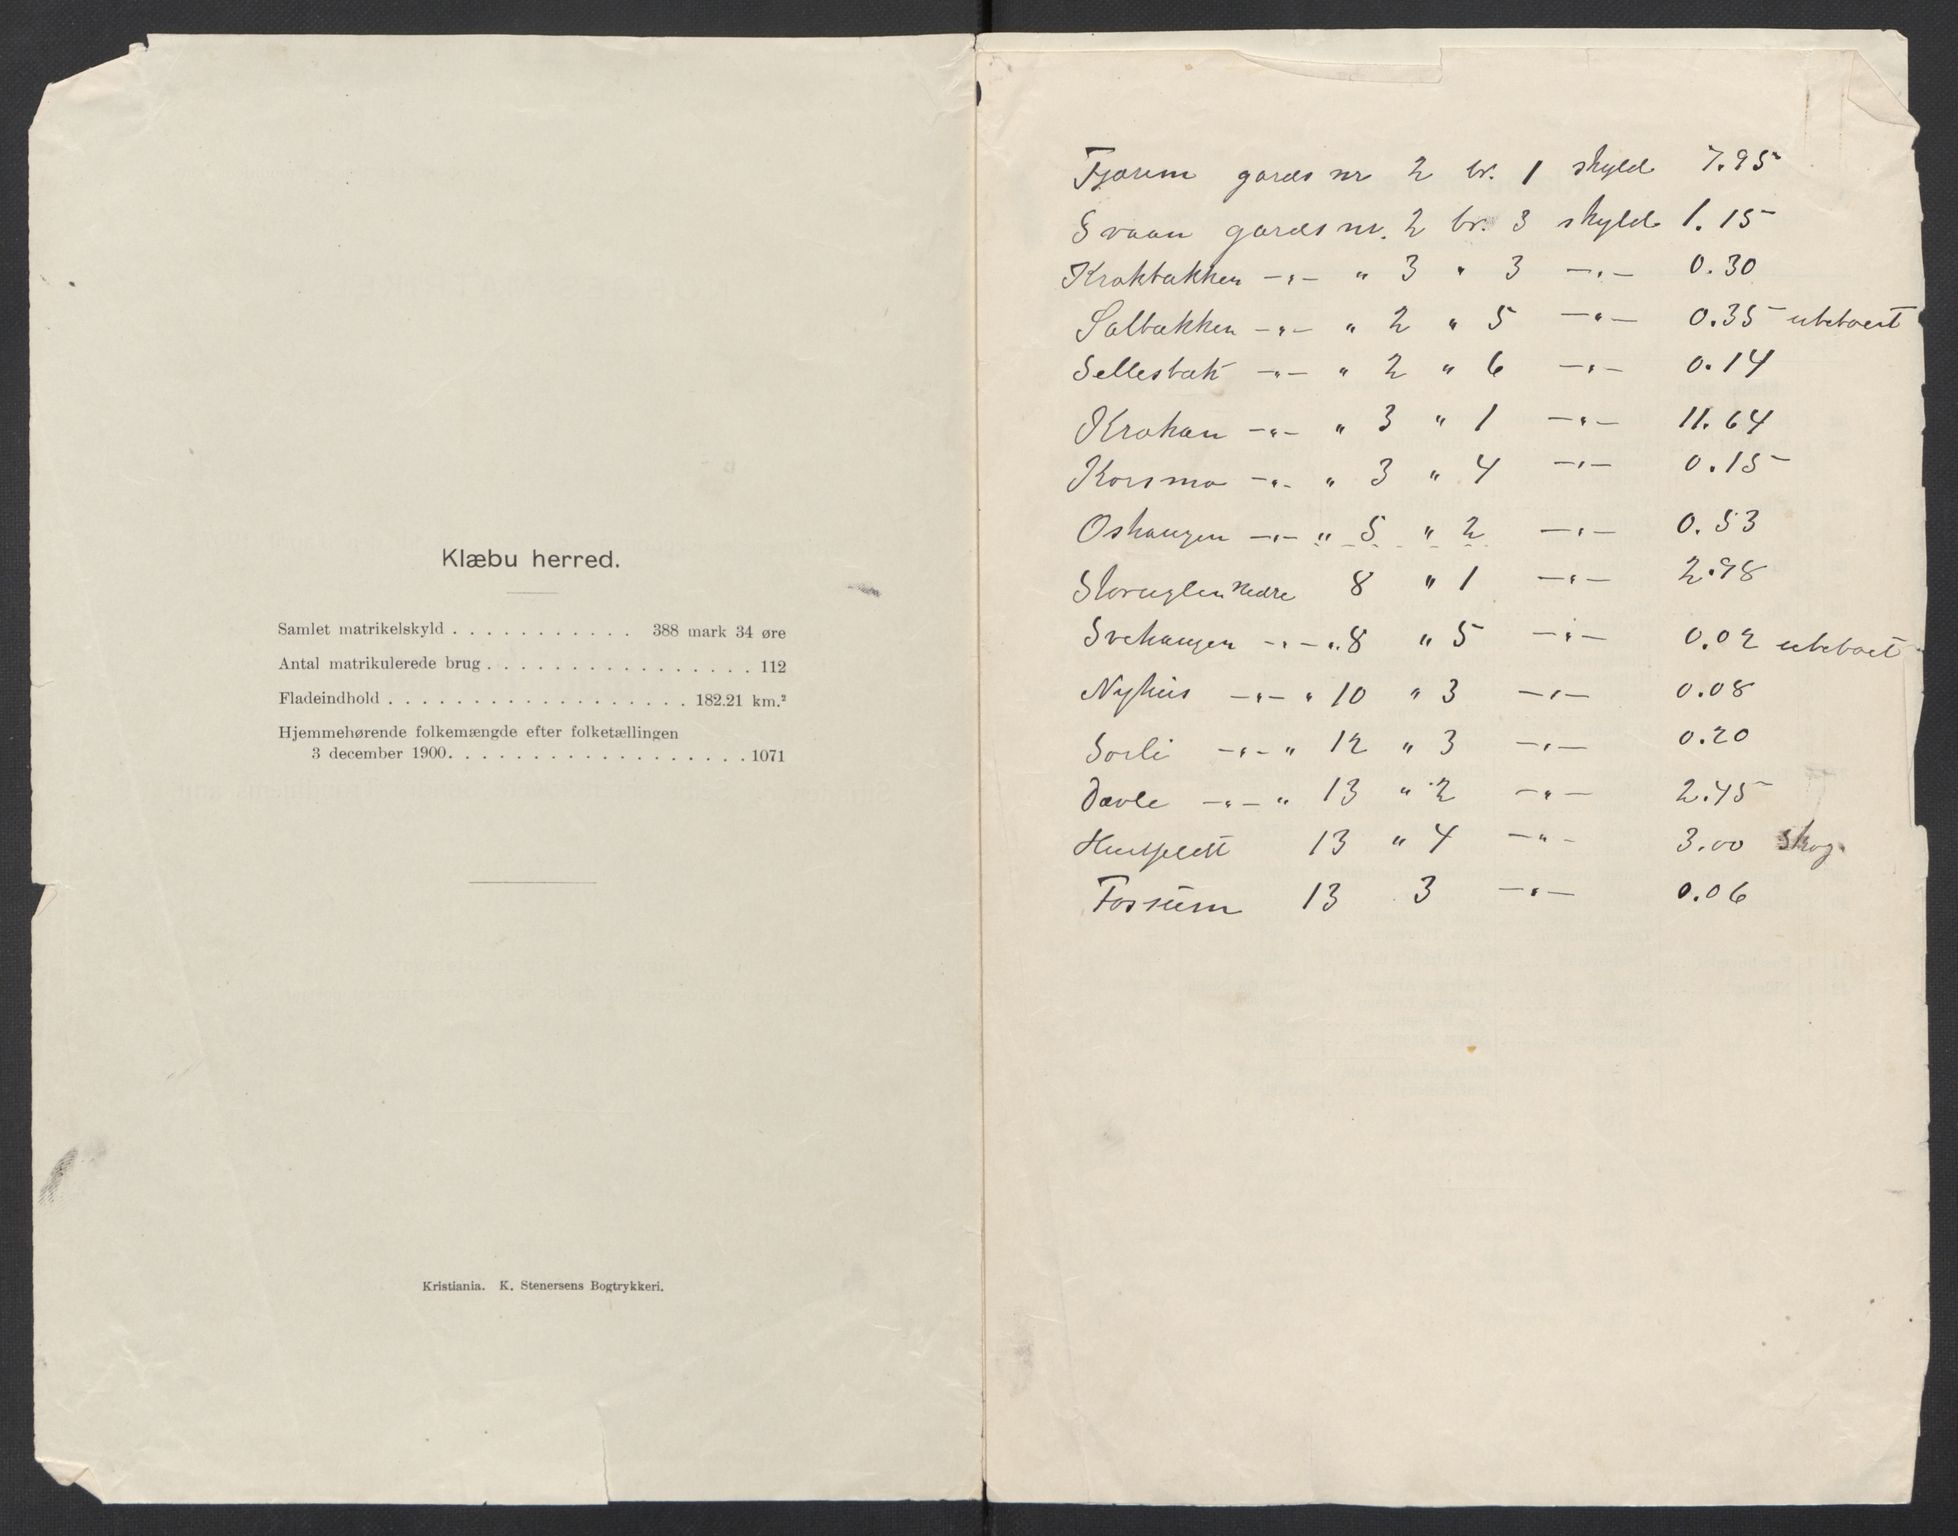 Klæbu herred.
Samlet matrikelskyld . . . . . . . . . . . 388 mark 34 øre
Antal matrikulerede brug . . . . . . . . . . . . . . . . 112
Fladeindhold . . . . . . . . . . . . . . . . . . 182.21 km.²
Hjemmehørende folkemængde efter folketællingen
3 december 1900. . . . . . . . . . . . . . . . . . 1071
Kristiania. K. Stenersens Bogtrykkeri.
Fjærem gards nr 2 br. 1 skyld 7.95
Svaan gards nr. 2 br. 3 skyld 1.15
Krokbakken -„- „ 3 „ 3 -„- 0.30
Salbakken -„- „ 2 „ 5 -„- 0.35 ubeboert
Sellesbak -„- „ 2 „ 6 -„- 0.14
Krokan -„- „ 3 „ 1 -„- 11.64
Korsmo -„- „ 3 „ 4 -„- 0.15
Oshaugen -„- „ 5 „ 2 -„- 0.53
Storuglen Nedre 8 „ 1 -„- 2.98
Svehaugen -„- „ 8 „ 5 -„- 0.02 ubeboet
Nyhus -„- „ 10 „ 3 -„- 0.08
Sorli -„- „ 12 „ 3 -„- 0.20
Davle -„- „ 13 „ 2 -„- 2.45
13 „ 4 -„- 3.00 skog.
Fossum 13 3 -„- 0.06